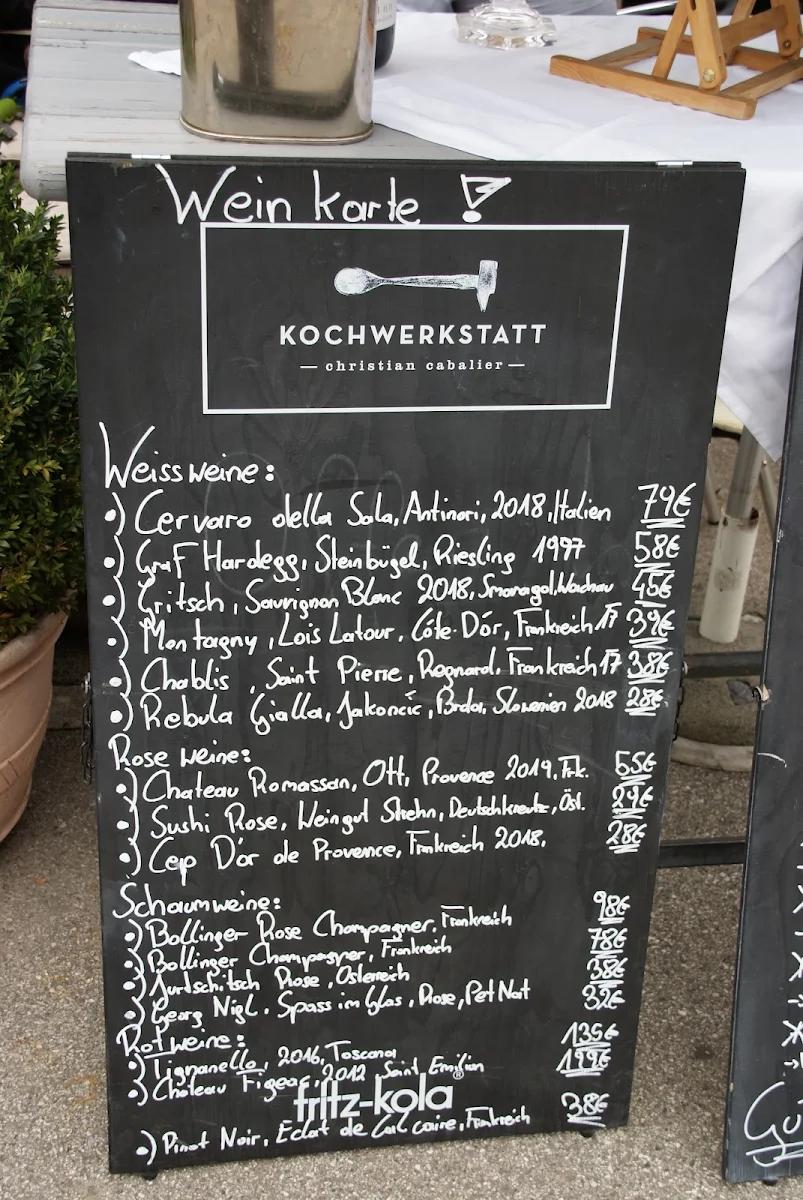 Wein karte !
KOCHWERKSTATT
— christian cabalier —
Weissweine:
•) Cervaro della Sala, Antinori, 2018, Italien 79€
•) Graf Hardegg, Steinbügel, Riesling 1997 58€
•) Gritsch, Sauvignon Blanc 2018, Smaragd, Wachau 45€
•) Montagny, Lois Latour, Côte D'ór, Frankreich 17 39€
•) Chablis, Saint Pierre, Regnard, Frankreich 17 38€
•) Rebula Gialla, Jakoncic, Brda, Slowenien 2018 28€
Rose weine:
•) Chateau Romassan, Ott, Provence 2019, Frk. 55€
•) Sushi Rose, Weingut Strehn, Deutschkreutz, Öst. 29€
•) Cep D'or de Provence, Frankreich 2018, 28€
Schaumweine:
•) Bollinger Rose Champagner, Frankreich 98€
•) Bollinger Champagner, Frankreich 78€
•) Jurtschitsch Rose, Österreich 38€
•) Georg Nigl, Spass im Glas, Rose, Pet Nat 32€
Rotweine:
•) Tignanello, 2016, Toscana 135€
•) Chateau Figeac, 2012 Saint, Emilion 199€
fritz-kola®
•) Pinot Noir, Eclat de Calcaire, Frankreich 38€